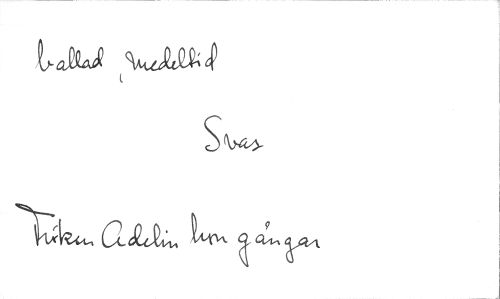 ballad, medeltid
Svas
Fröken Adelin hon gångar